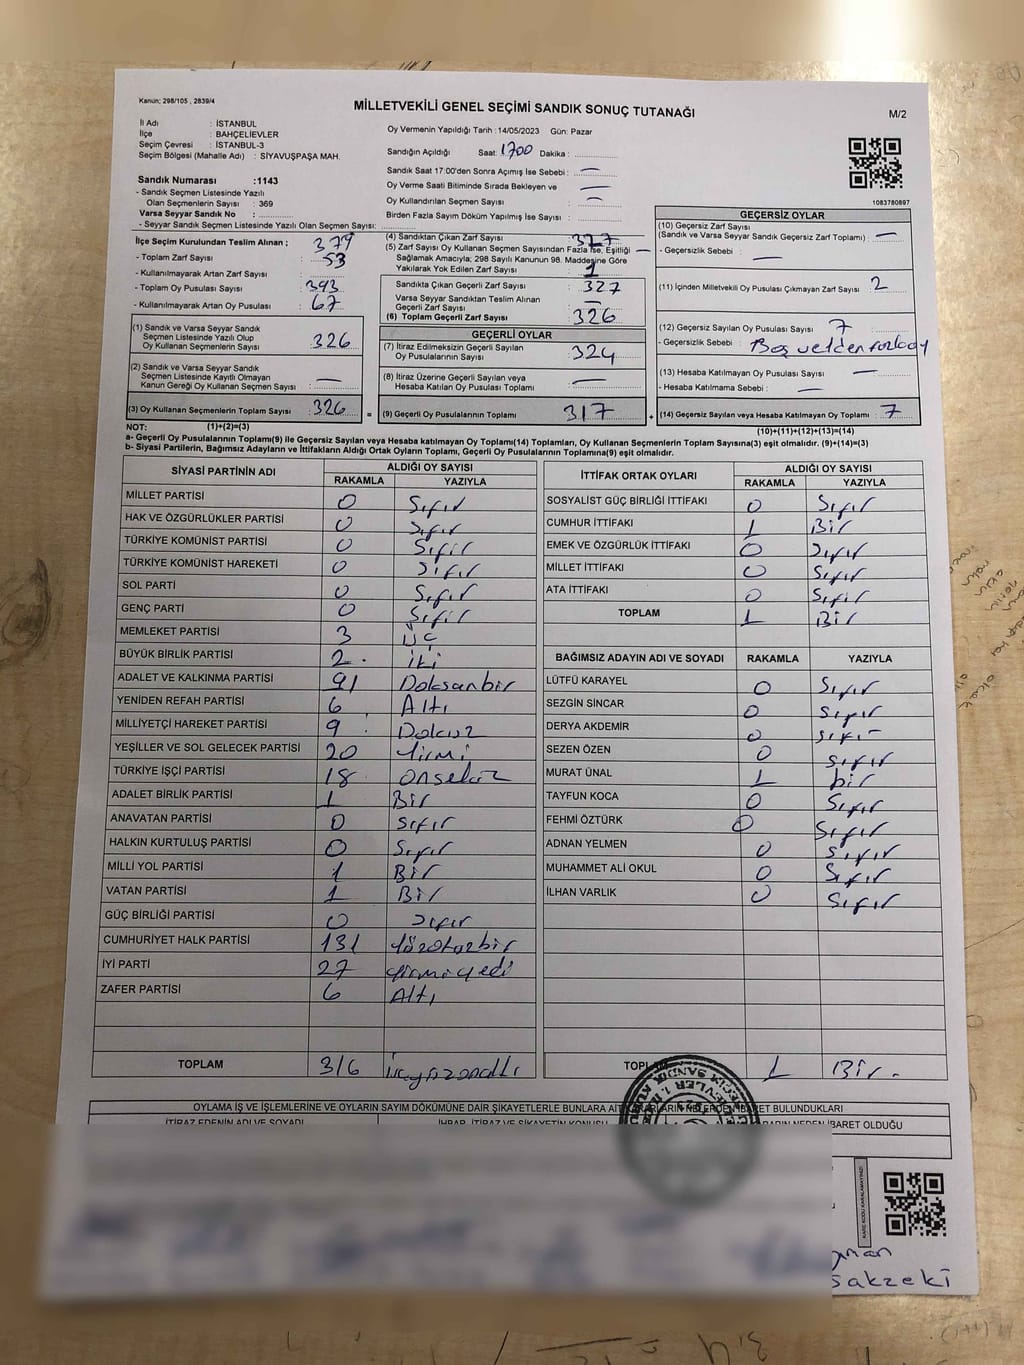 Kanun; 298/105 , 2839/4
MİLLETVEKİLİ GENEL SEÇİMİ SANDIK SONUÇ TUTANAĞI
M/2
İl Adı : İSTANBUL
İlçe : BAHÇELİEVLER
Seçim Çevresi : İSTANBUL-3
Seçim Bölgesi (Mahalle Adı) : SİYAVUŞPAŞA MAH.
Sandık Numarası :1143
- Sandık Seçmen Listesinde Yazılı
Olan Seçmenlerin Sayısı : 369
Varsa Seyyar Sandık No :
- Seyyar Sandık Seçmen Listesinde Yazılı Olan Seçmen Sayısı:
İlçe Seçim Kurulundan Teslim Alınan ;
- Toplam Zarf Sayısı : 379
- Kullanılmayarak Artan Zarf Sayısı : 53
- Toplam Oy Pusulası Sayısı : 393
- Kullanılmayarak Artan Oy Pusulası : 67
(1) Sandık ve Varsa Seyyar Sandık
Seçmen Listesinde Yazılı Olup
Oy Kullanan Seçmenlerin Sayısı : 326
(2) Sandık ve Varsa Seyyar Sandık
Seçmen Listesinde Kayıtlı Olmayan
Kanun Gereği Oy Kullanan Seçmen Sayısı : —
(3) Oy Kullanan Seçmenlerin Toplam Sayısı : 326 =
Oy Vermenin Yapıldığı Tarih : 14/05/2023 Gün: Pazar
Sandığın Açıldığı Saat: 1700 Dakika :
Sandık Saat 17:00'den Sonra Açımış İse Sebebi : —
Oy Verme Saati Bitiminde Sırada Bekleyen ve —
Oy Kullandırılan Seçmen Sayısı : —
Birden Fazla Sayım Döküm Yapılmış İse Sayısı :
(4) Sandıktan Çıkan Zarf Sayısı : 327
(5) Zarf Sayısı Oy Kullanan Seçmen Sayısından Fazla İse, Eşitliği —
Sağlamak Amacıyla; 298 Sayılı Kanunun 98. Maddesine Göre
Yakılarak Yok Edilen Zarf Sayısı : 1
Sandıkta Çıkan Geçerli Zarf Sayısı : 327
Varsa Seyyar Sandıktan Teslim Alınan
Geçerli Zarf Sayısı : —
(6) Toplam Geçerli Zarf Sayısı : 326
GEÇERLİ OYLAR
(7) İtiraz Edilmeksizin Geçerli Sayılan
Oy Pusulalarının Sayısı : 324
(8) İtiraz Üzerine Geçerli Sayılan veya
Hesaba Katılan Oy Pusulası Toplamı : —
(9) Geçerli Oy Pusulalarının Toplamı : 317 +
1083780897
GEÇERSİZ OYLAR
(10) Geçersiz Zarf Sayısı
(Sandık ve Varsa Seyyar Sandık Geçersiz Zarf Toplamı) : —
- Geçersizlik Sebebi : —
(11) İçinden Milletvekili Oy Pusulası Çıkmayan Zarf Sayısı : 2
(12) Geçersiz Sayılan Oy Pusulası Sayısı : 7
- Geçersizlik Sebebi : Boş
(13) Hesaba Katılmayan Oy Pusulası Sayısı : —
- Hesaba Katılmama Sebebi : —
(14) Geçersiz Sayılan veya Hesaba Katılmayan Oy Toplamı : 7
NOT: (1)+(2)=(3) (10)+(11)+(12)+(13)=(14)
a- Geçerli Oy Pusulalarının Toplamı(9) ile Geçersiz Sayılan veya Hesaba katılmayan Oy Toplamı(14) Toplamları, Oy Kullanan Seçmenlerin Toplam Sayısına(3) eşit olmalıdır. (9)+(14)=(3)
b- Siyasi Partilerin, Bağımsız Adayların ve İttifakların Aldığı Ortak Oyların Toplamı, Geçerli Oy Pusulalarının Toplamına(9) eşit olmalıdır.
SİYASİ PARTİNİN ADI ALDIĞI OY SAYISI
RAKAMLA YAZIYLA
MİLLET PARTİSİ 0 Sıfır
HAK VE ÖZGÜRLÜKLER PARTİSİ 0 Sıfır
TÜRKİYE KOMÜNİST PARTİSİ 0 Sıfır
TÜRKİYE KOMÜNİST HAREKETİ 0 Sıfır
SOL PARTİ 0 Sıfır
GENÇ PARTİ 0 Sıfır
MEMLEKET PARTİSİ 3 Üç
BÜYÜK BİRLİK PARTİSİ 2 iki
ADALET VE KALKINMA PARTİSİ 91 Doksanbir
YENİDEN REFAH PARTİSİ 6 Altı
MİLLİYETÇİ HAREKET PARTİSİ 9 Dokuz
YEŞİLLER VE SOL GELECEK PARTİSİ 20 Yirmi
TÜRKİYE İŞÇİ PARTİSİ 18 onsekiz
ADALET BİRLİK PARTİSİ 1 Bir
ANAVATAN PARTİSİ 0 sıfır
HALKIN KURTULUŞ PARTİSİ 0 Sıfır
MİLLİ YOL PARTİSİ 1 Bir
VATAN PARTİSİ 1 Bir
GÜÇ BİRLİĞİ PARTİSİ 0 Sıfır
CUMHURİYET HALK PARTİSİ 131 Yüzotuzbir
İYİ PARTİ 27 Yirmiyedi
ZAFER PARTİSİ 6 Altı
TOPLAM 316 üçyüzonaltı
İTTİFAK ORTAK OYLARI ALDIĞI OY SAYISI
RAKAMLA YAZIYLA
SOSYALİST GÜÇ BİRLİĞİ İTTİFAKI 0 Sıfır
CUMHUR İTTİFAKI 1 Bir
EMEK VE ÖZGÜRLÜK İTTİFAKI 0 Sıfır
MİLLET İTTİFAKI 0 Sıfır
ATA İTTİFAKI 0 Sıfır
TOPLAM 1 Bir
BAĞIMSIZ ADAYIN ADI VE SOYADI RAKAMLA YAZIYLA
LÜTFÜ KARAYEL 0 Sıfır
SEZGİN SİNCAR 0 Sıfır
DERYA AKDEMİR 0 sıfır
SEZEN ÖZEN 0 sıfır
MURAT ÜNAL 1 bir
TAYFUN KOCA 0 Sıfır
FEHMİ ÖZTÜRK 0 Sıfır
ADNAN YELMEN 0 Sıfır
MUHAMMET ALİ OKUL 0 Sıfır
İLHAN VARLIK 0 Sıfır
TOPLAM 1 Bir
OYLAMA İŞ VE İŞLEMLERİNE VE OYLARIN SAYIM DÖKÜMÜNE DAİR ŞİKAYETLERLE BUNLARA AİT KARARLARIN NELERDEN İBARET BULUNDUKLARI
İTİRAZ EDENİN ADI VE SOYADI İHBAR, İTİRAZ VE ŞİKAYETİN KONUSU KARARIN NEDEN İBARET OLDUĞU
KARE KODU KARALAMAYINIZ!